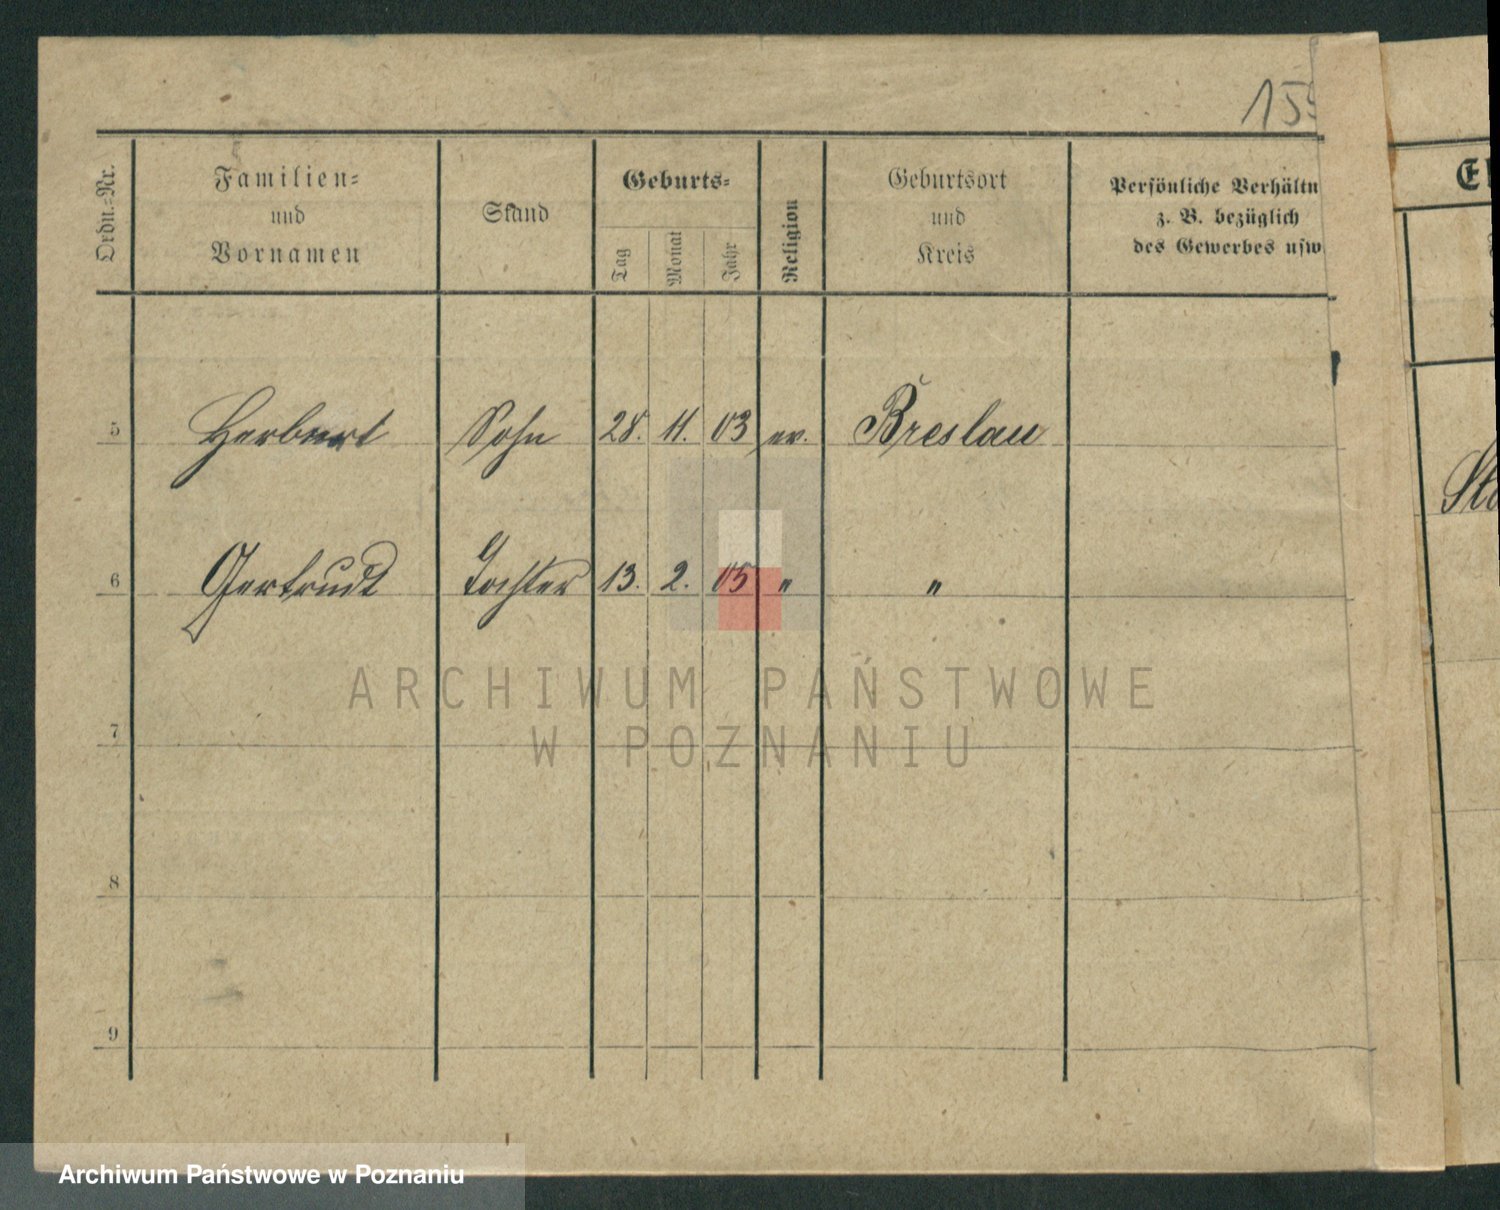 155
Ordn.-Nr.
Familien-
und
Vornamen
Stand
Geburts-
Tag
Monat
Jahr
Religion
Geburtsort
und
Kreis
Persönliche Verhältn
z. B. bezüglich
des Gewerbes usw.
5 Herbert Sohn 28. 11. 03 ev. Breslau
6 Gertrudt Tochter 13. 2. 05 " "
ARCHIWUM PAŃSTWOWE
W POZNANIU
7
8
9
Archiwum Państwowe w Poznaniu